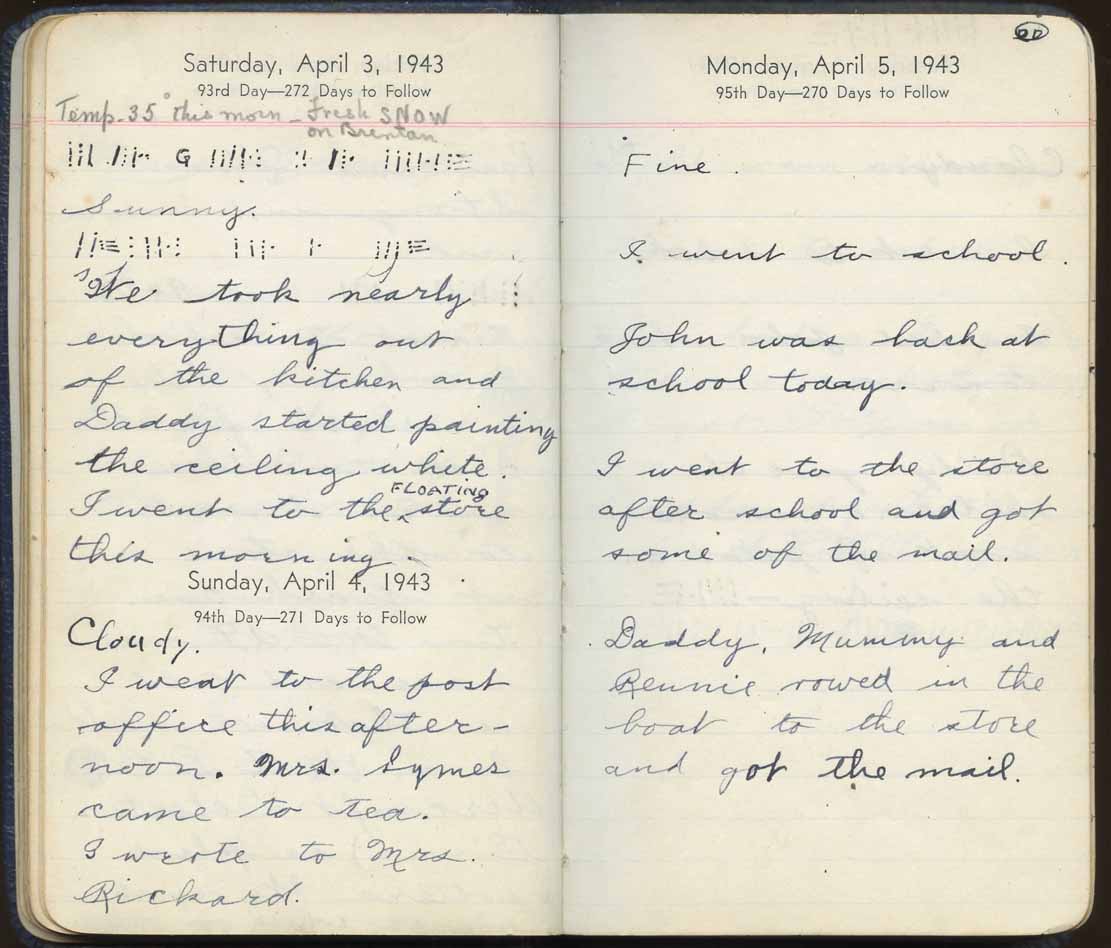 Saturday, April 3, 1943
93rd Day—272 Days to Follow
Temp. 35° this morn – Fresh SNOW
on Brentan
Sunny.
We took nearly
everything out
of the kitchen and
Daddy started painting
the ceiling white.
FLOATING
I went to the ‸ store
this morning.
Sunday, April 4, 1943
94th Day—271 Days to Follow
Cloudy.
I went to the post
office this after-
noon. Mrs. Symes
came to tea.
I wrote to Mrs.
Rickard.
Monday, April 5, 1943
95th Day—270 Days to Follow
Fine.
I went to school.
John was back at
school today.
I went to the store
after school and got
some of the mail.
Daddy, Mummy and
Rennie rowed in the
boat to the store
and got the mail.